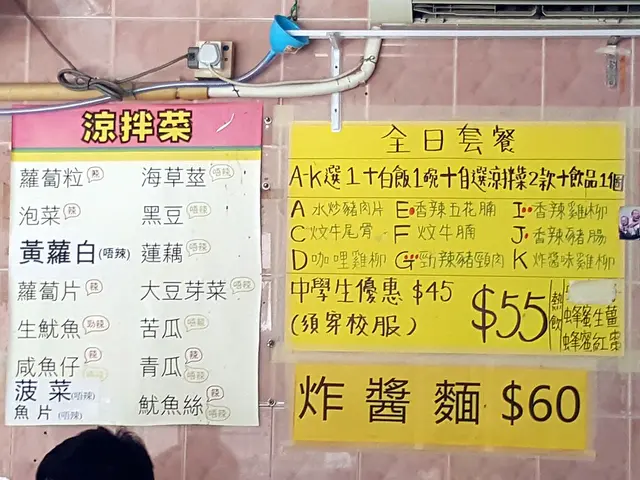 涼拌菜
蘿蔔粒 辣 海草莖 唔辣
泡菜 辣 黑豆 唔辣
黃蘿白(唔辣) 蓮藕 唔辣
蘿蔔片 辣 大豆芽菜 唔辣
生魷魚 勁辣 苦瓜 唔辣
咸魚仔 辣 唔辣 青瓜 辣 唔辣
菠菜(唔辣) 魷魚絲 辣 唔辣
魚片(唔辣)
全日套餐
A-K選1+白飯1碗+自選涼拌菜2款+飲品1個
A 水炒豬肉片 E 香辣五花腩 I 香辣雞柳
C 炆牛尾骨 F 炆牛腩 J 香辣豬腸
D 咖哩雞柳 G 勁辣豬頸肉 K 炸醬味雞柳
中學生優惠 $45
(須穿校服)
$55
熱飲
蜂蜜生薑
蜂蜜紅棗
炸醬麵 $60